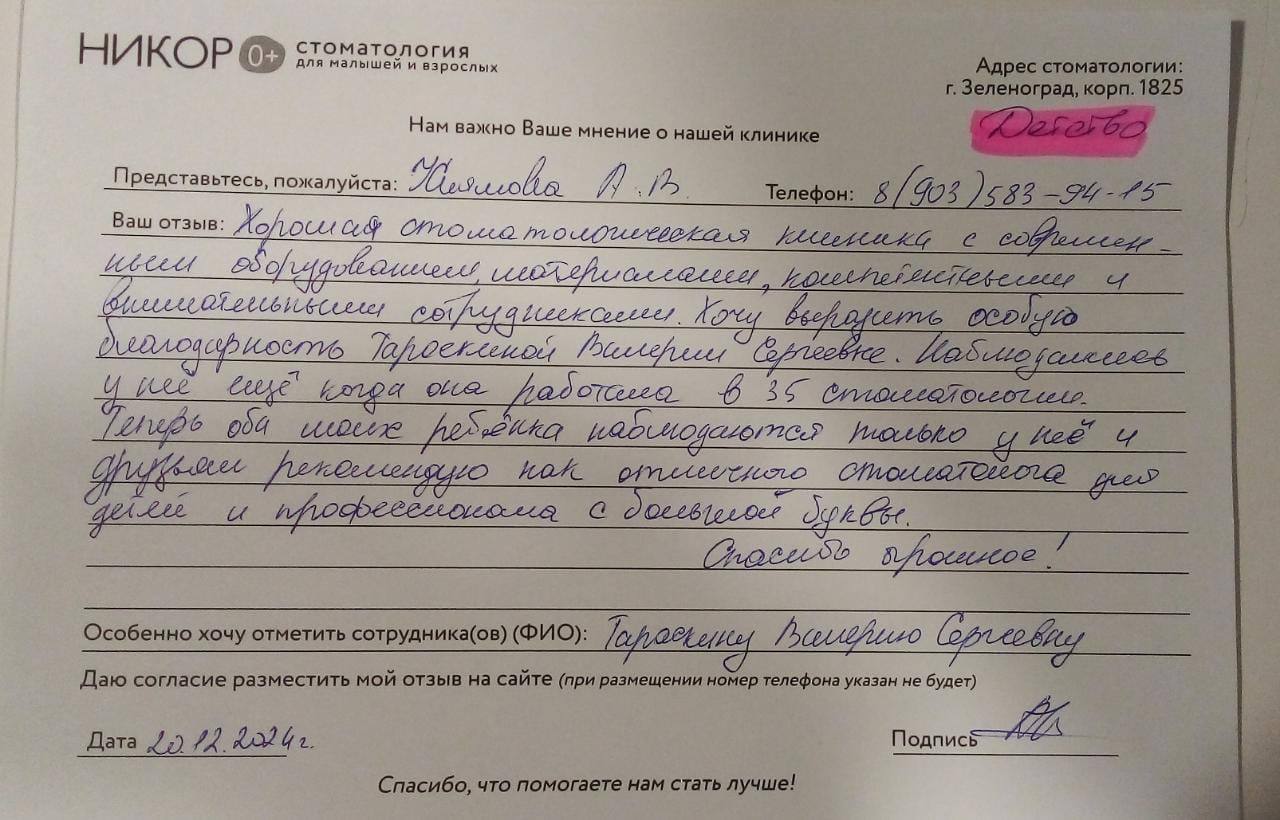 НИКОР 0+ СТОМАТОЛОГИЯ
ДЛЯ МАЛЫШЕЙ И ВЗРОСЛЫХ
Адрес стоматологии:
г. Зеленоград, корп. 1825
Детство
Нам важно Ваше мнение о нашей клинике
Представьтесь, пожалуйста: А.В. Телефон: 8(903)583-94-15
Ваш отзыв: Хорошая стоматологическая клиника с современ-
ным оборудованием, материалами, компетентными и
внимательными сотрудниками. Хочу выразить особую
благодарность Тароскиной Валерии Сергеевне. Наблюдались
у неё ещё когда она работала в 35 стоматологии.
Теперь оба моих ребёнка наблюдаются только у неё и
друзьям рекомендую как отличного стоматолога для
детей и профессионала с большой буквы.
Спасибо огромное!
Особенно хочу отметить сотрудника(ов) (ФИО): Тароскину Валерию Сергеевну
Даю согласие разместить мой отзыв на сайте (при размещении номер телефона указан не будет)
Дата 20.12.2024г. Подпись
Спасибо, что помогаете нам стать лучше!